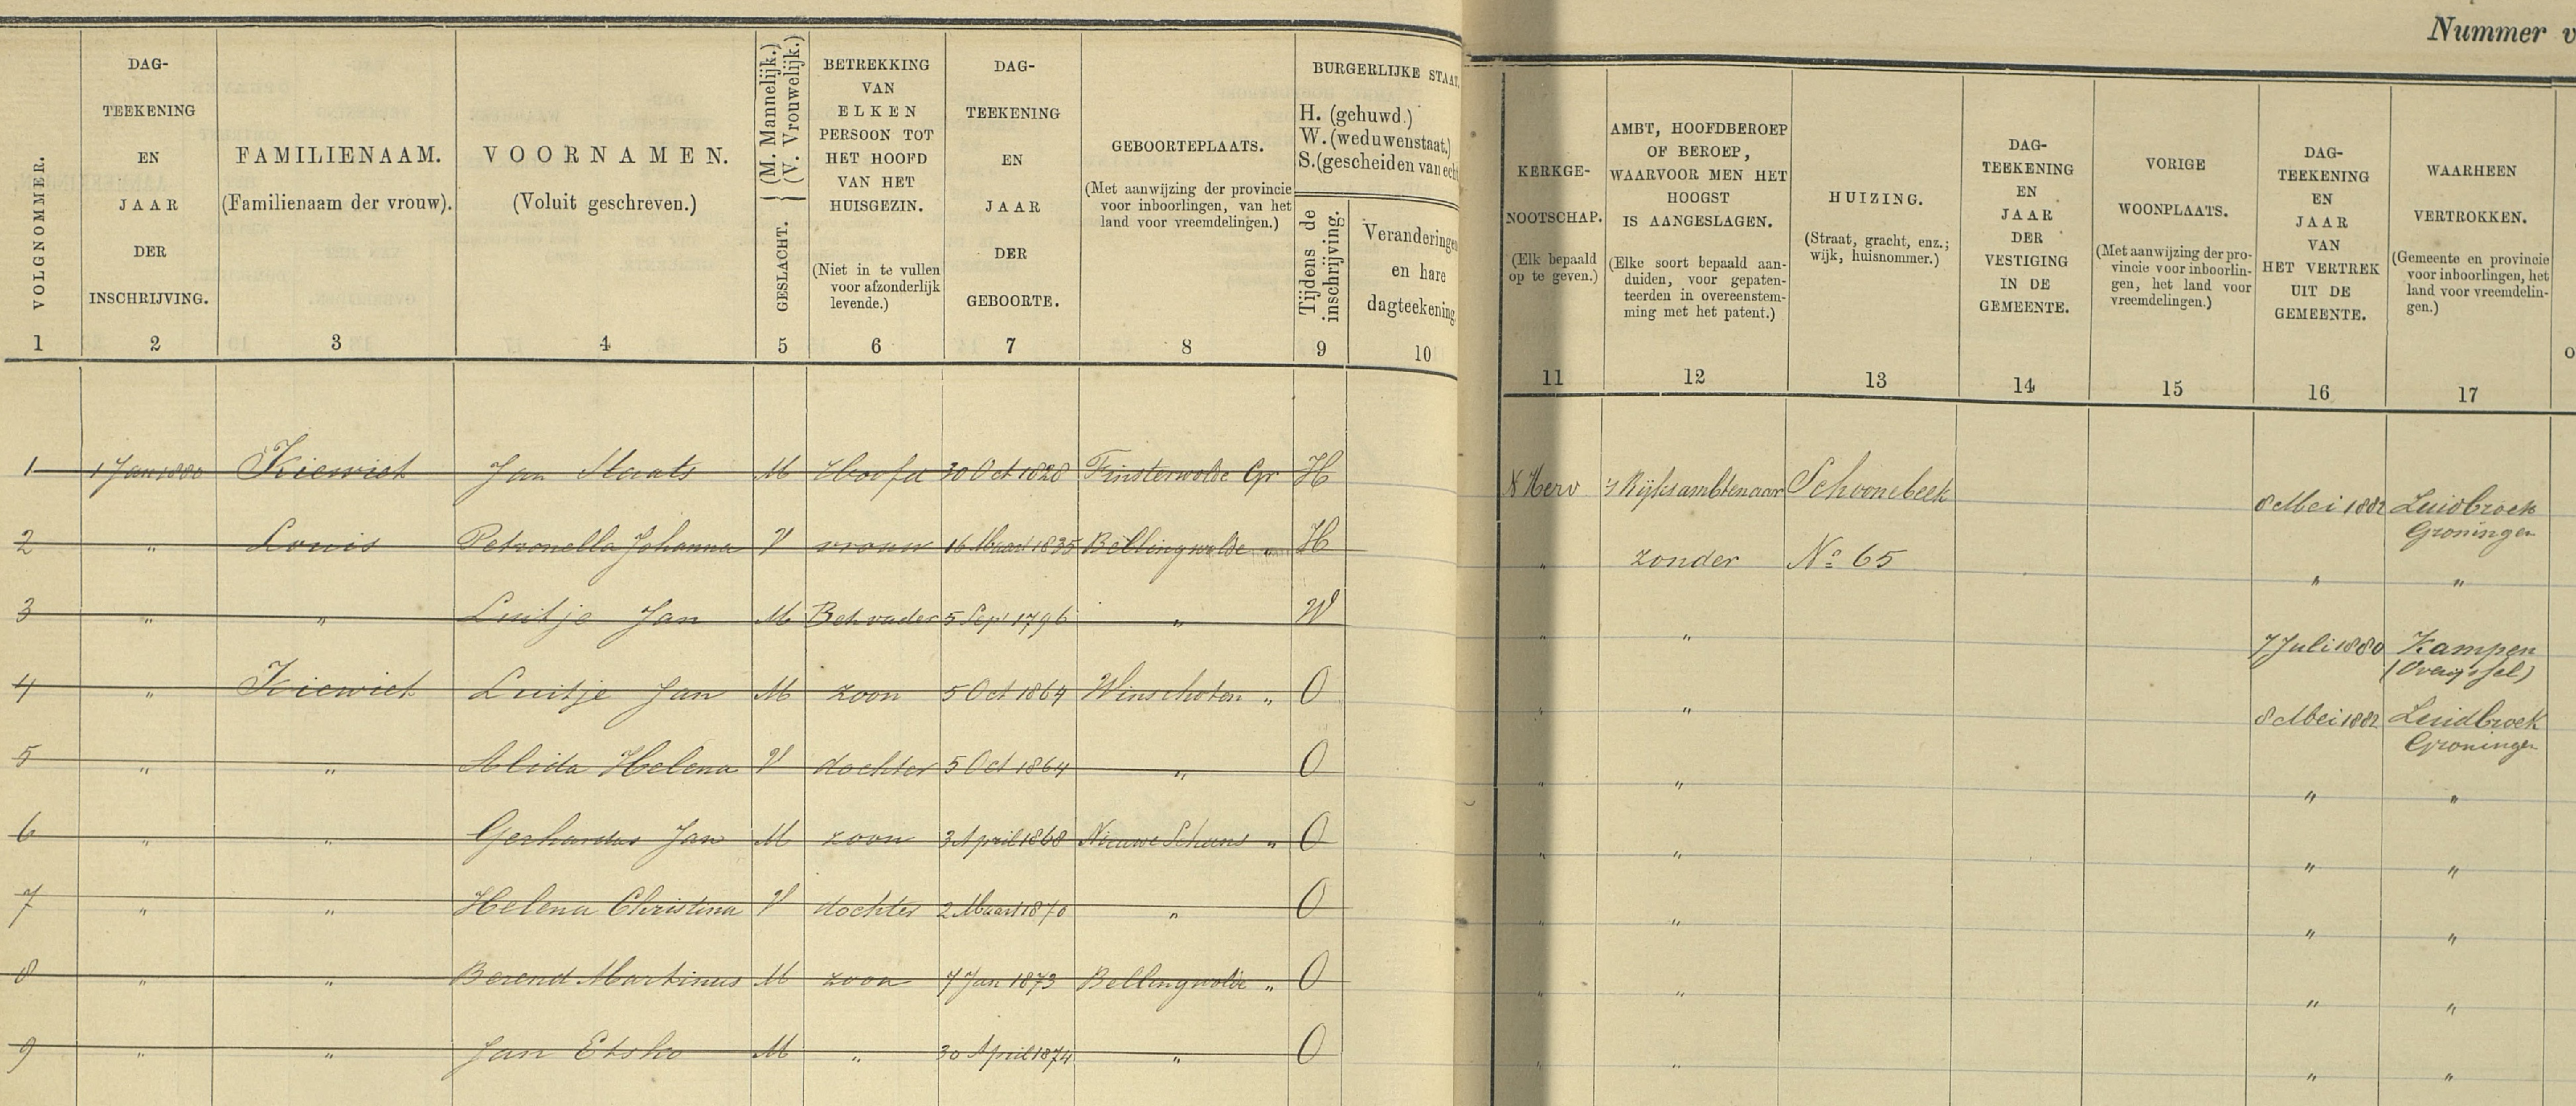 Nummer v
VOLGNOMMER.
1
DAG-
TEEKENING
EN
JAAR
DER
INSCHRIJVING.
2
FAMILIENAAM.
(Familienaam der vrouw).
3
VOORNAMEN.
(Voluit geschreven.)
4
GESLACHT. (M. Mannelijk.)
(V. Vrouwelijk.)
5
BETREKKING
VAN
ELKEN
PERSOON TOT
HET HOOFD
VAN HET
HUISGEZIN.
(Niet in te vullen
voor afzonderlijk
levende.)
6
DAG-
TEEKENING
EN
JAAR
DER
GEBOORTE.
7
GEBOORTEPLAATS.
(Met aanwijzing der provincie
voor inboorlingen, van het
land voor vreemdelingen.)
8
BURGERLIJKE STAAT.
H. (gehuwd.)
W. (weduwenstaat.)
S. (gescheiden van echt
Tijdens de
inschrijving.
9
Veranderingen
en hare
dagteekening.
10
KERKGE-
NOOTSCHAP.
(Elk bepaald
op te geven.)
11
AMBT, HOOFDBEROEP
OF BEROEP,
WAARVOOR MEN HET
HOOGST
IS AANGESLAGEN.
(Elke soort bepaald aan-
duiden, voor gepaten-
teerden in overeenstem-
ming met het patent.)
12
HUIZING.
(Straat, gracht, enz.;
wijk, huisnommer.)
13
DAG-
TEEKENING
EN
JAAR
DER
VESTIGING
IN DE
GEMEENTE.
14
VORIGE
WOONPLAATS.
(Met aanwijzing der pro-
vincie voor inboorlin-
gen, het land voor
vreemdelingen.)
15
DAG-
TEEKENING
EN
JAAR
VAN
HET VERTREK
UIT DE
GEMEENTE.
16
WAARHEEN
VERTROKKEN.
(Gemeente en provincie
voor inboorlingen, het
land voor vreemdelin-
gen.)
17
o
1 1 Jan 1880 Kiewiet Jan Staats M Hoofd 30 Oct 1828 Finsterwolde Gr H N Herv 's Rijksambtenaar Schoonebeek 8 Mei 1882 Zuidbroek
Groningen
2 " Louis Petronella Johanna V vrouw 16 Maart 1835 Bellingwolde " H " zonder No 65 " "
3 " " Luitje Jan M Behvader 5 Sept 1796 " W " " 7 Juli 1880 Kampen
(Overijssel)
4 " Kiewiet Luitje Jan M zoon 5 Oct 1864 Winschoten " O " " 8 Mei 1882 Zuidbroek
Groningen
5 " " Alida Helena V dochter 5 Oct 1864 " O " " " "
6 " " Gerhardus Jan M zoon 3 April 1868 Nieuwe Schans " O " " " "
7 " " Helena Christina V dochter 2 Maart 1870 " O " " " "
8 " " Berend Martinus M zoon 7 Jan 1873 Bellingwolde " O " " " "
9 " " Jan Etsko M " 30 April 1874 " O " " " "